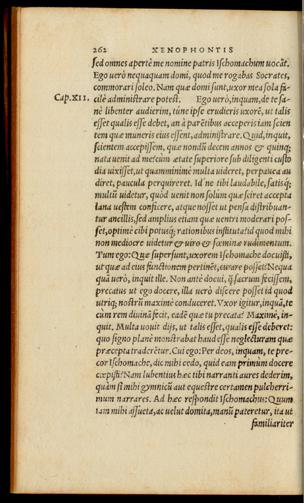 262 XENOPHONTIS
sed omnes apertè me nomine patris Ischomachum uocãt.
Ego uerò nequaquam domi, quod me rogabas Socrates,
commorari soleo. Nam quæ domi sunt, uxor mea sola fa-
Cap. XII. cilè administrare potest. Ego uerò, inquam, de te sa-
nè libenter audierim, tùne ipse erudieris uxorē, ut talis
esset qualis esse debet, an à parētibus acceperis iam scien
tem quæ muneris eius essent, administrare. Quid, inquit,
scientem accepissem, quæ nondū decem annos & quinq;
nata uenit ad me? cùm ætate superiore sub diligenti custo
dia uixisset, ut quamminimè multa uideret, perpauca au
diret, paucula perquireret. Id ne tibi laudabile, satisq́;
multū uidetur, quòd uenit non solum quæ sciret accepta
lana uestem conficere, atque nosset ut pensa distribuan-
tur ancillis, sed amplius etiam quæ uentri moderari pos-
set, optimè cibi potusq́; rationibus instituta? id quod mihi
non mediocre uidetur & uiro & fœminæ rudimentum.
Tum ego: Quæ supersunt, uxorem Ischomache docuisti,
ut quæ ad eius functionem pertinēt, curare posset? Nequa
quā uerò, inquit ille. Non antè docui, q̃ sacrum fecissem,
precatus ut ego docere, illa uerò discere posset id quod
utriq; nostrū maximè conduceret. Vxor igitur, inquā, te
cum rem diuinā fecit, eadē quæ tu precata? Maximè, in-
quit. Multa uouit dijs, ut talis esset, qualis esse deberet:
quo signo planè monstrabat haud esse neglecturam quæ
præcepta traderētur. Cui ego: Per deos, inquam, te pre-
cor Ischomache, dic mihi cedo, quid eam primùm docere
cœpisti? Nam lubentius hæc tibi narranti aures dederim,
quàm si mihi gymnicū aut equestre certamen pulcherri-
mum narrares. Ad hæc respondit Ischomachus: Quum
iam mihi assueta, ac uelut domita, manū pateretur, ita ut
familiariter